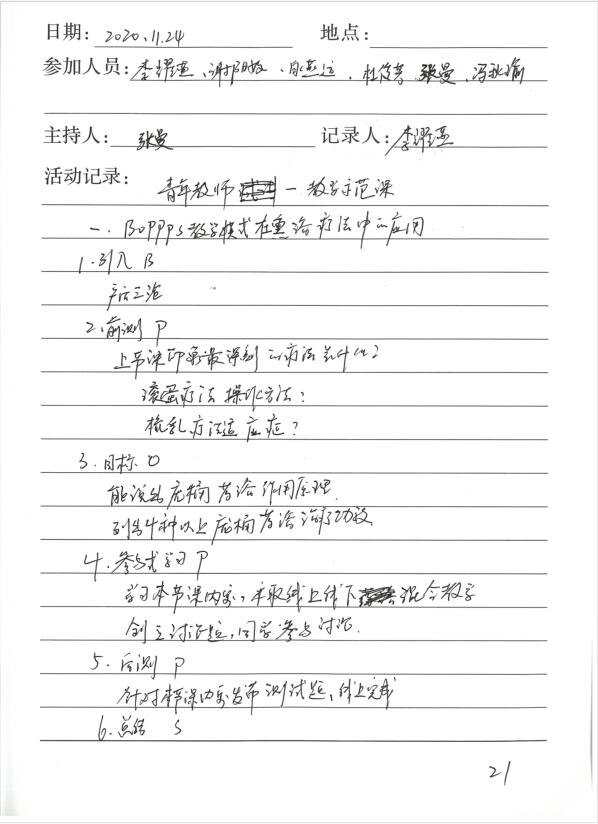 日期: 2020.11.24 地点:
参加人员: 李耀燕、谢阳姣、白燕远、杜俊芳、张曼、冯秋瑜
主持人: 张曼 记录人: 李耀燕
活动记录:
青年教师 — 教学示范课
一、BOPPPS教学模式在熏浴疗法中的应用
1.引入 B
产后三浴
2.前测 P
上节课印象最深刻的疗法是什么?
滚蛋疗法操作方法?
梳乳疗法适应症?
3.目标 O
能说出庞桶药浴作用原理.
列出4种以上庞桶药浴治疗功效
4.参与式学习 P
学习本节课内容,采取线上线下混合教学
创立讨论题,同学参与讨论.
5.后测 P
针对本节课内容发布测试题,线上完成
6.总结 S
21